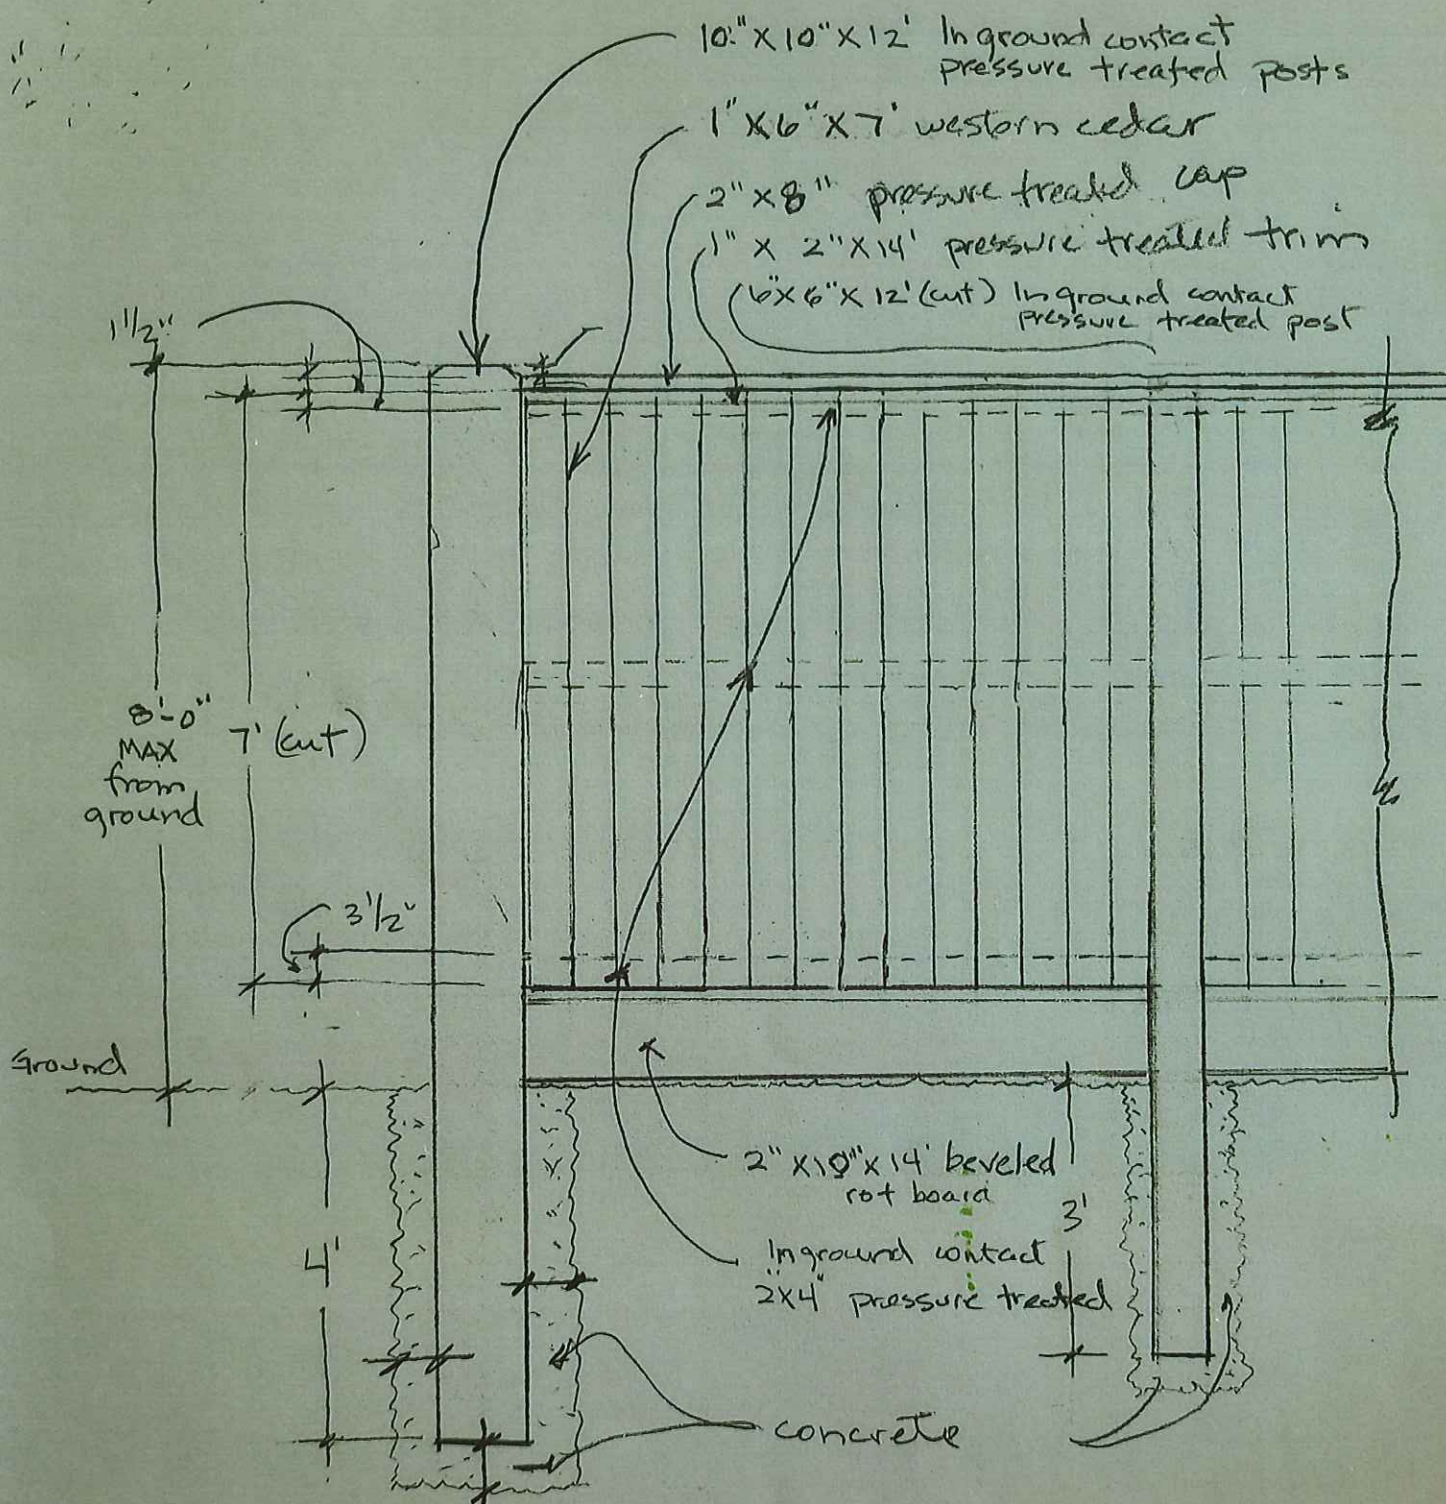 10" X 10" X 12' In ground contact
pressure treated posts
1" X 6" X 7' western cedar
2" X 8" pressure treated cap
1" X 2" X 14' pressure treated trim
6" X 6" X 12' (cut) In ground contact
pressure treated post
1 1/2"
8'-0"
MAX
from
ground
7' (cut)
3 1/2"
Ground
2" X 10" X 14' beveled
rot board
3'
4'
In ground contact
2"X4" pressure treated
concrete